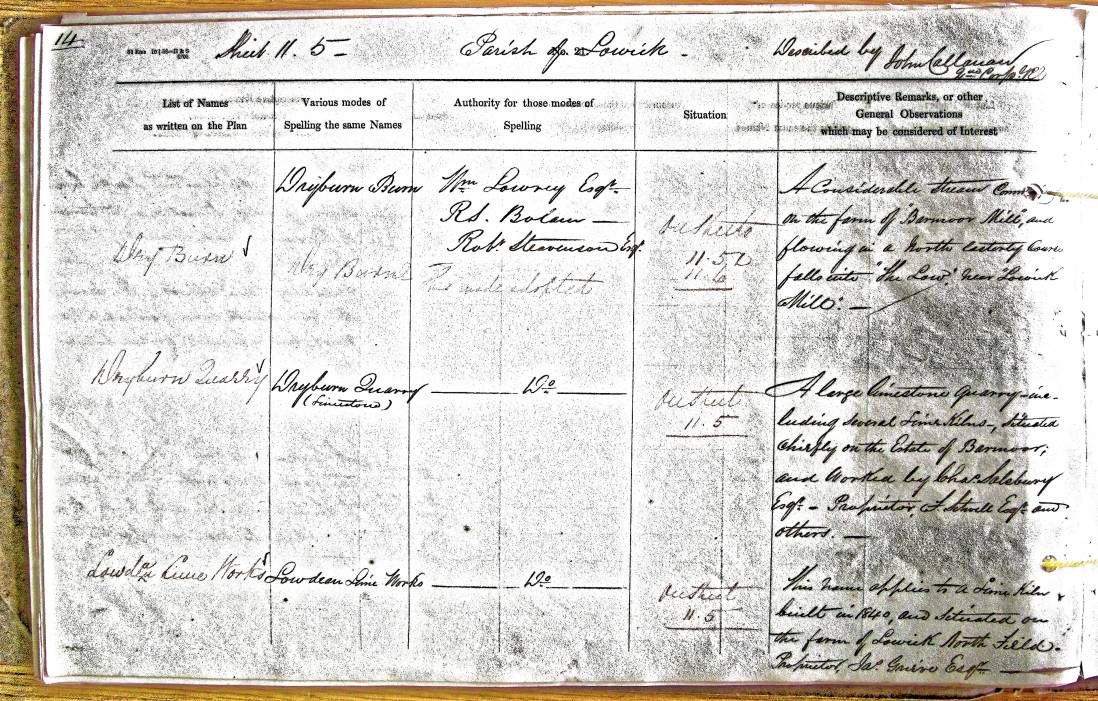 14
Sheet 11. 5 -
Parish of Lowick -
Described by John Callanan
2nd Corpl RE
List of Names
as written on the Plan
Various modes of
Spelling the same Names
Authority for those modes of
Spelling
Situation
Descriptive Remarks, or other
General Observations
which may be considered of Interest
Dry Burn
Dryburn Burn
Dry Burn
Wm Lowrey Esqr.
R.S. Bolam
Robt. Stevenson Esqr.
The mode adopted
On Sheets
11. 5
11. 6
A Considerable stream
on the farm of "Barmoor Mill", and
flowing in a North easterly Course
falls into "The Low", near "Lowick
Mill". —
Dryburn Quarry
Dryburn Quarry
(Limestone)
Do
On Sheet
11. 5
A large limestone Quarry - in-
luding several Lime Kilns -, Situated
Chiefly on the Estate of Barmoor;
and Worked by Chas. Salsbury
Esqr. - Proprietor F. Sitwell Esqr. and
others. —
Lime Works
Lowdean Lime Works
Do
On Sheet
11. 5
This name applies to a Lime Kiln
built in 1840, and Situated on
the farm of Lowick North Field.
Proprietor, Jas. Grieve Esqr. —